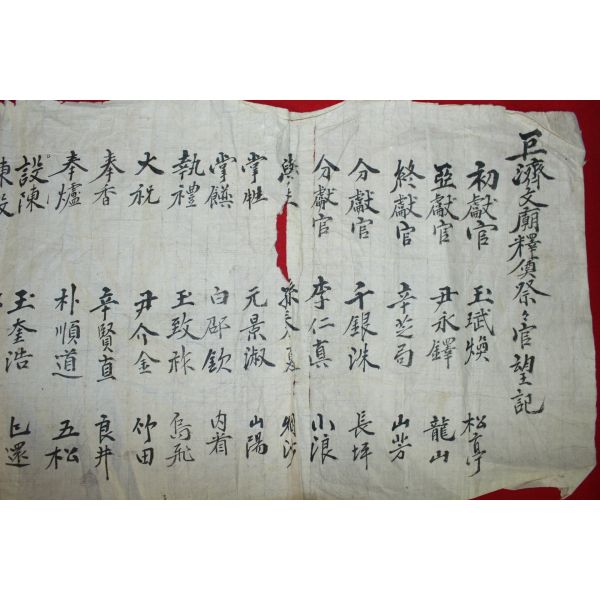 巨濟文廟釋奠祭々官望記
初獻官 玉珷煥 松亭
亞獻官 尹永鐸 龍山
終獻官 辛芝局 山芳
分獻官 千銀洙 長坪
分獻官 李仁真 小浪
掌牲 元景淑 山陽
掌饌 白邵欽 內看
執禮 玉致祚 烏飛
大祝 尹介金 竹田
奉香 辛賢直 良井
奉爐 朴順道 五松
設陳 玉奎浩